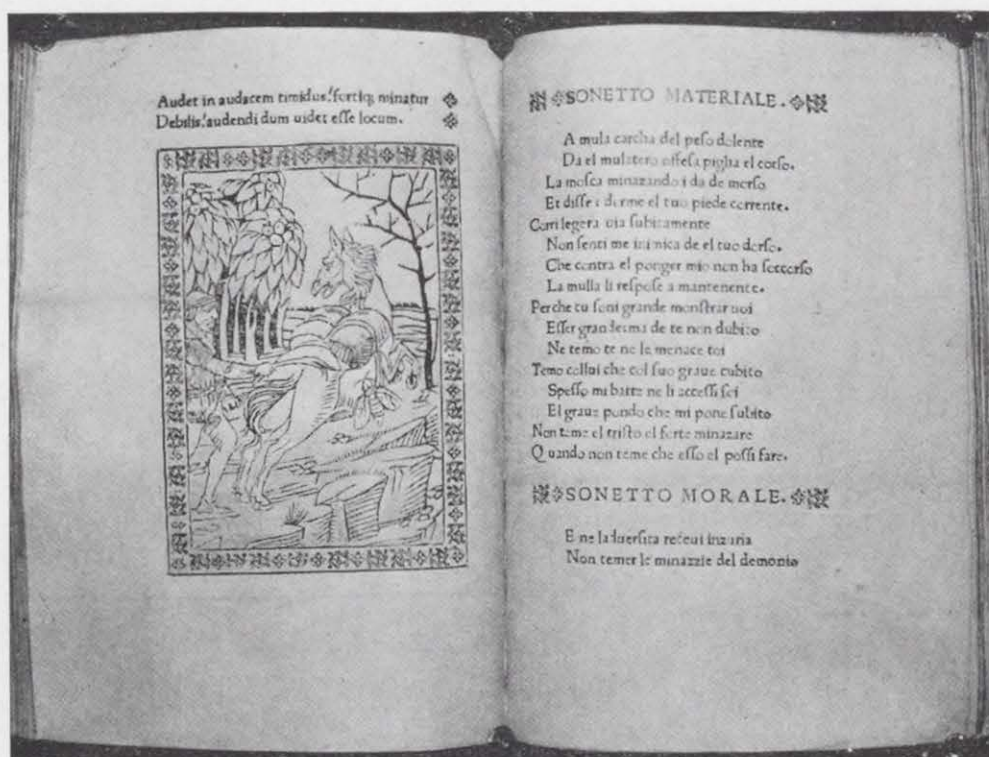 Audet in audacem timidus: fortiq; minatur
Debilis: audendi dum uidet esse locum.
SONETTO MATERIALE.
A mula carcha del peso dolente
Da el mulatero offesa piglia el corso.
La mosca minazando i da de morso
Et disse derme el tuo piede corrente.
Corri legera uia subitamente
Non senti me inimica de el tuo dorso.
Che contra el ponger mio non ha soccorso
La mulla li respose a mantenente.
Perche tu soni grande monstrar uoi
Esser gran de te non dubito
Ne temo te ne le menace toi
Temo collui che col suo graue cubito
Spesso mi batte ne li accessi soi
El graue pondo che mi pone subito
Non teme el tristo el forte minazare
Quando non teme che esso el possi fare.
SONETTO MORALE.
E ne receui
Non temer le minazzie del demonio